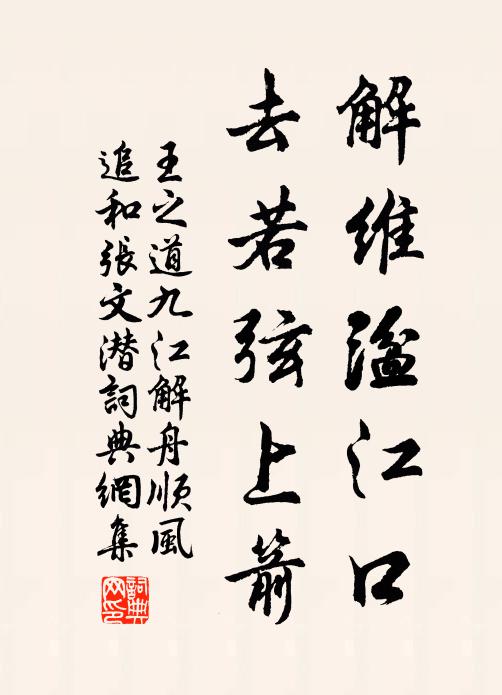 解維湓江口
去若弦上箭
王之道九江解舟順風
追和張文潜詞典網集
詞典网印